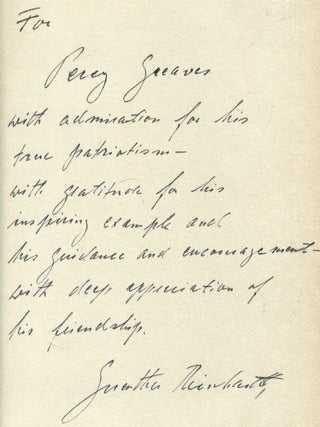 For
Percy Greaves
with admiration for his
true patriotism—
with gratitude for his
inspiring example and
his guidance and encouragement—
with deep appreciation of
his friendship.
Guenther Reinhardt,